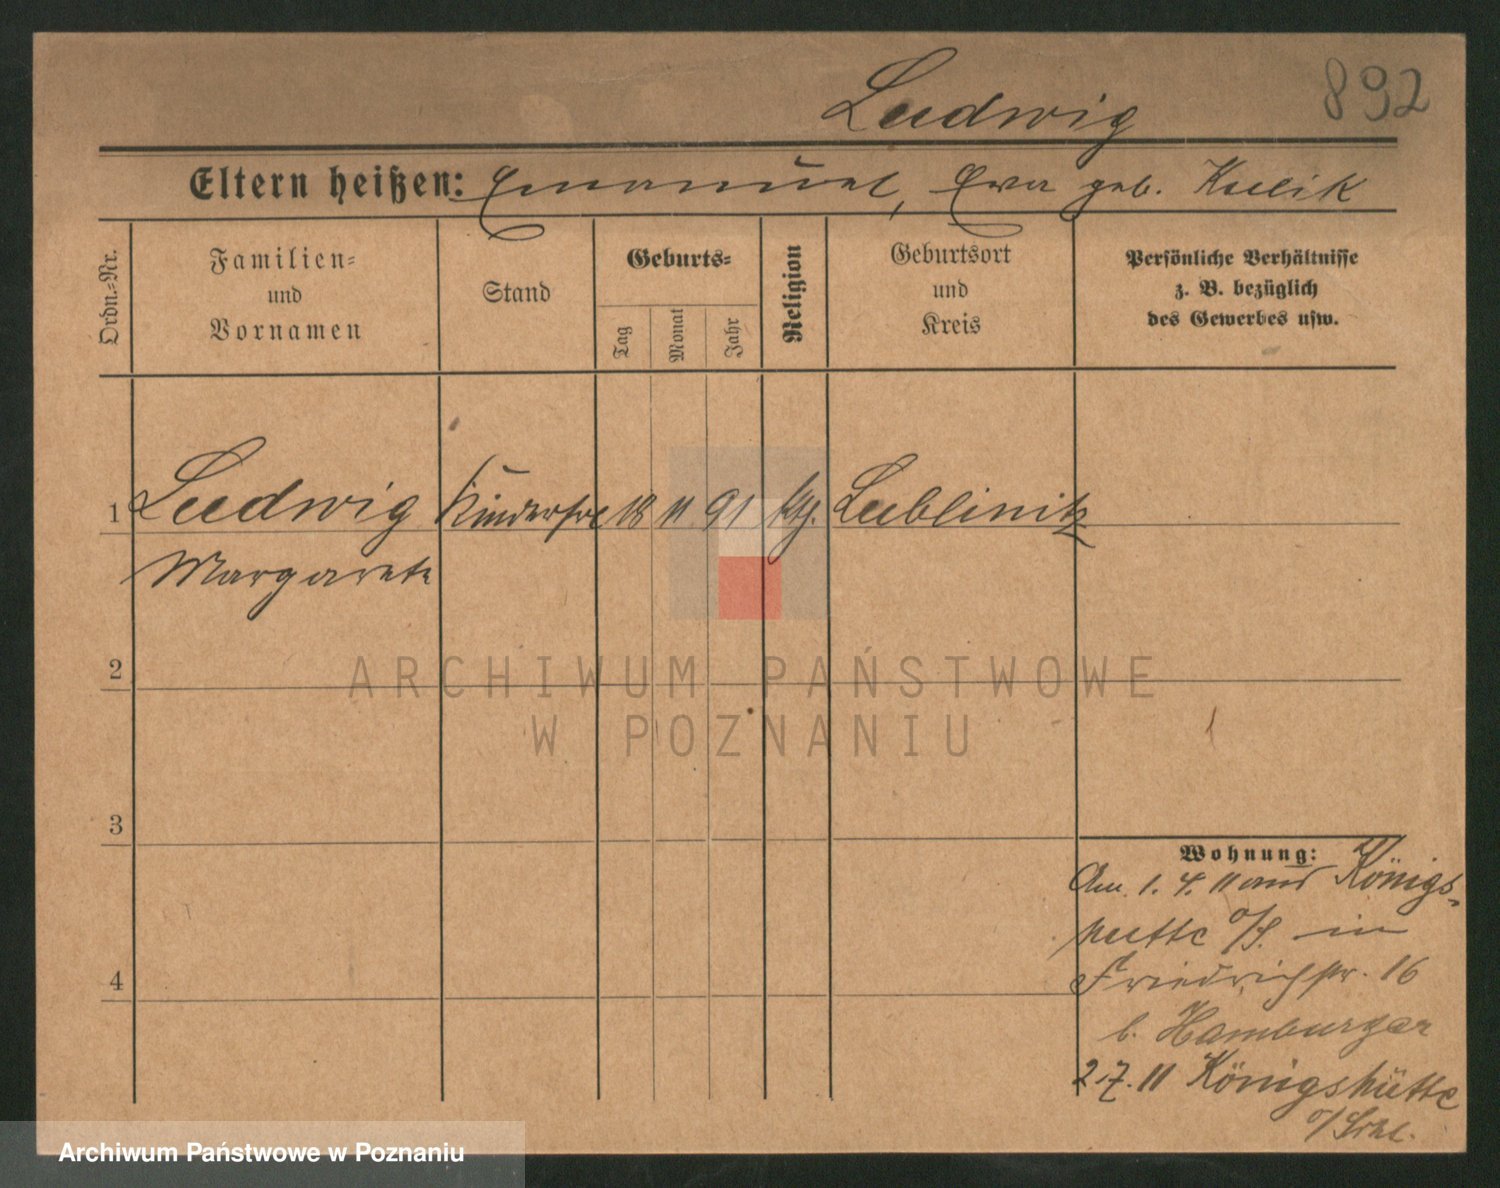 Ludwig
892
Eltern heißen: Emanuel, Eva geb. Kulik
Ordn.-Nr.
Familien-
und
Vornamen
Stand
Geburts-
Tag
Monat
Jahr
Religion
Geburtsort
und
Kreis
Persönliche Verhältnisse
z. B. bezüglich
des Gewerbes usw.
1 Ludwig Kinderfrl 18 11 91 ktl. Lublinitz
Margarete
2
3
4
Wohnung:
Am 1. 4. 11 aus Königs-
hütte O/S. in
Friedrichstr. 16
b. Hamburger
2.7.11 Königshütte
O/Schl.
ARCHIWUM PAŃSTWOWE
W POZNANIU
Archiwum Państwowe w Poznaniu